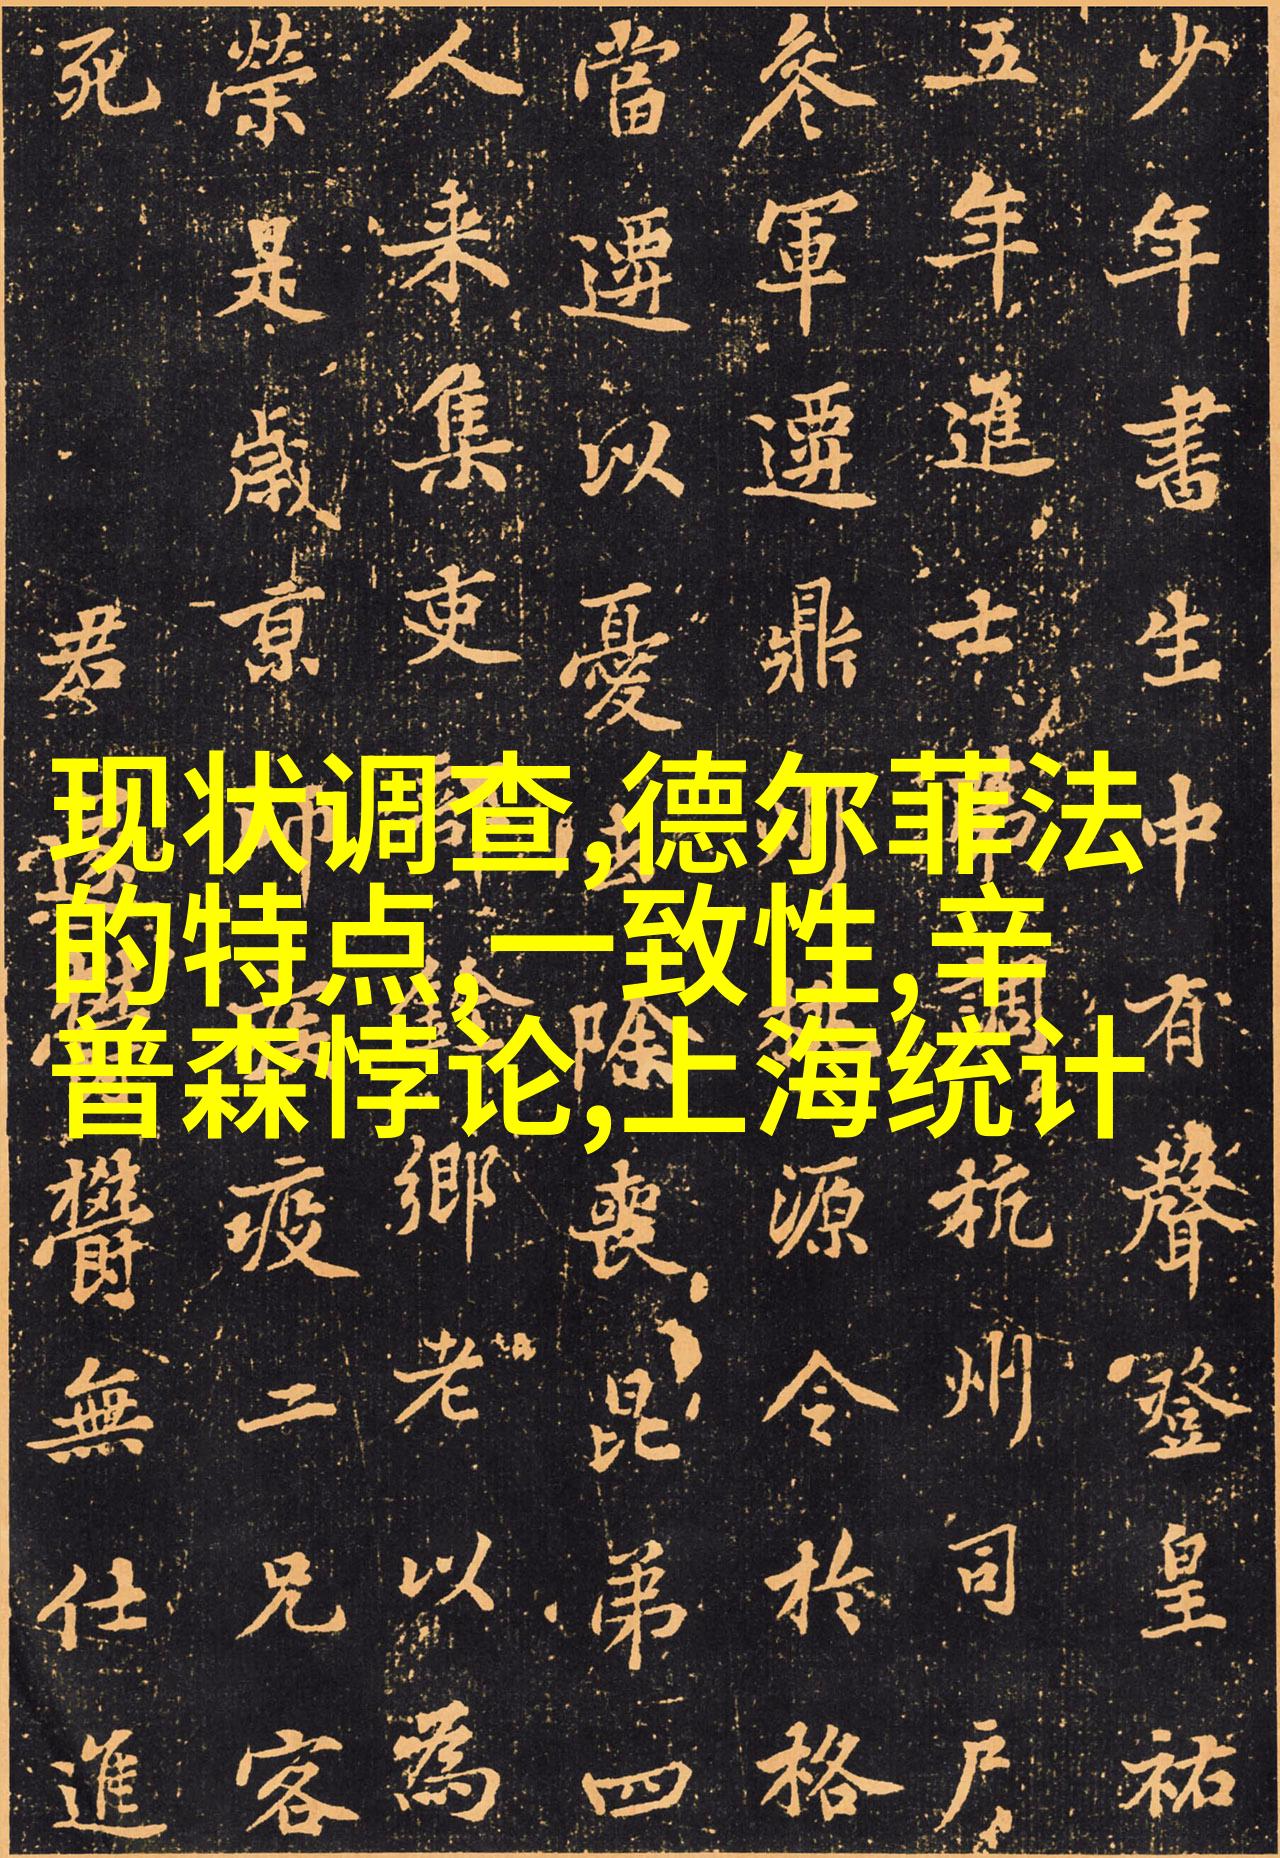 现状调查,德尔菲法
的特点,一致性,辛
普森悖论,上海统计
少年書生中有聲登皇祐
五年進士調杭州司户
參軍遷鼎源令於格
當遷以憂去除喪昆弟四
人来集吏銓鄉老以為
榮是歲京師疫二兄客
死君欎無仕進